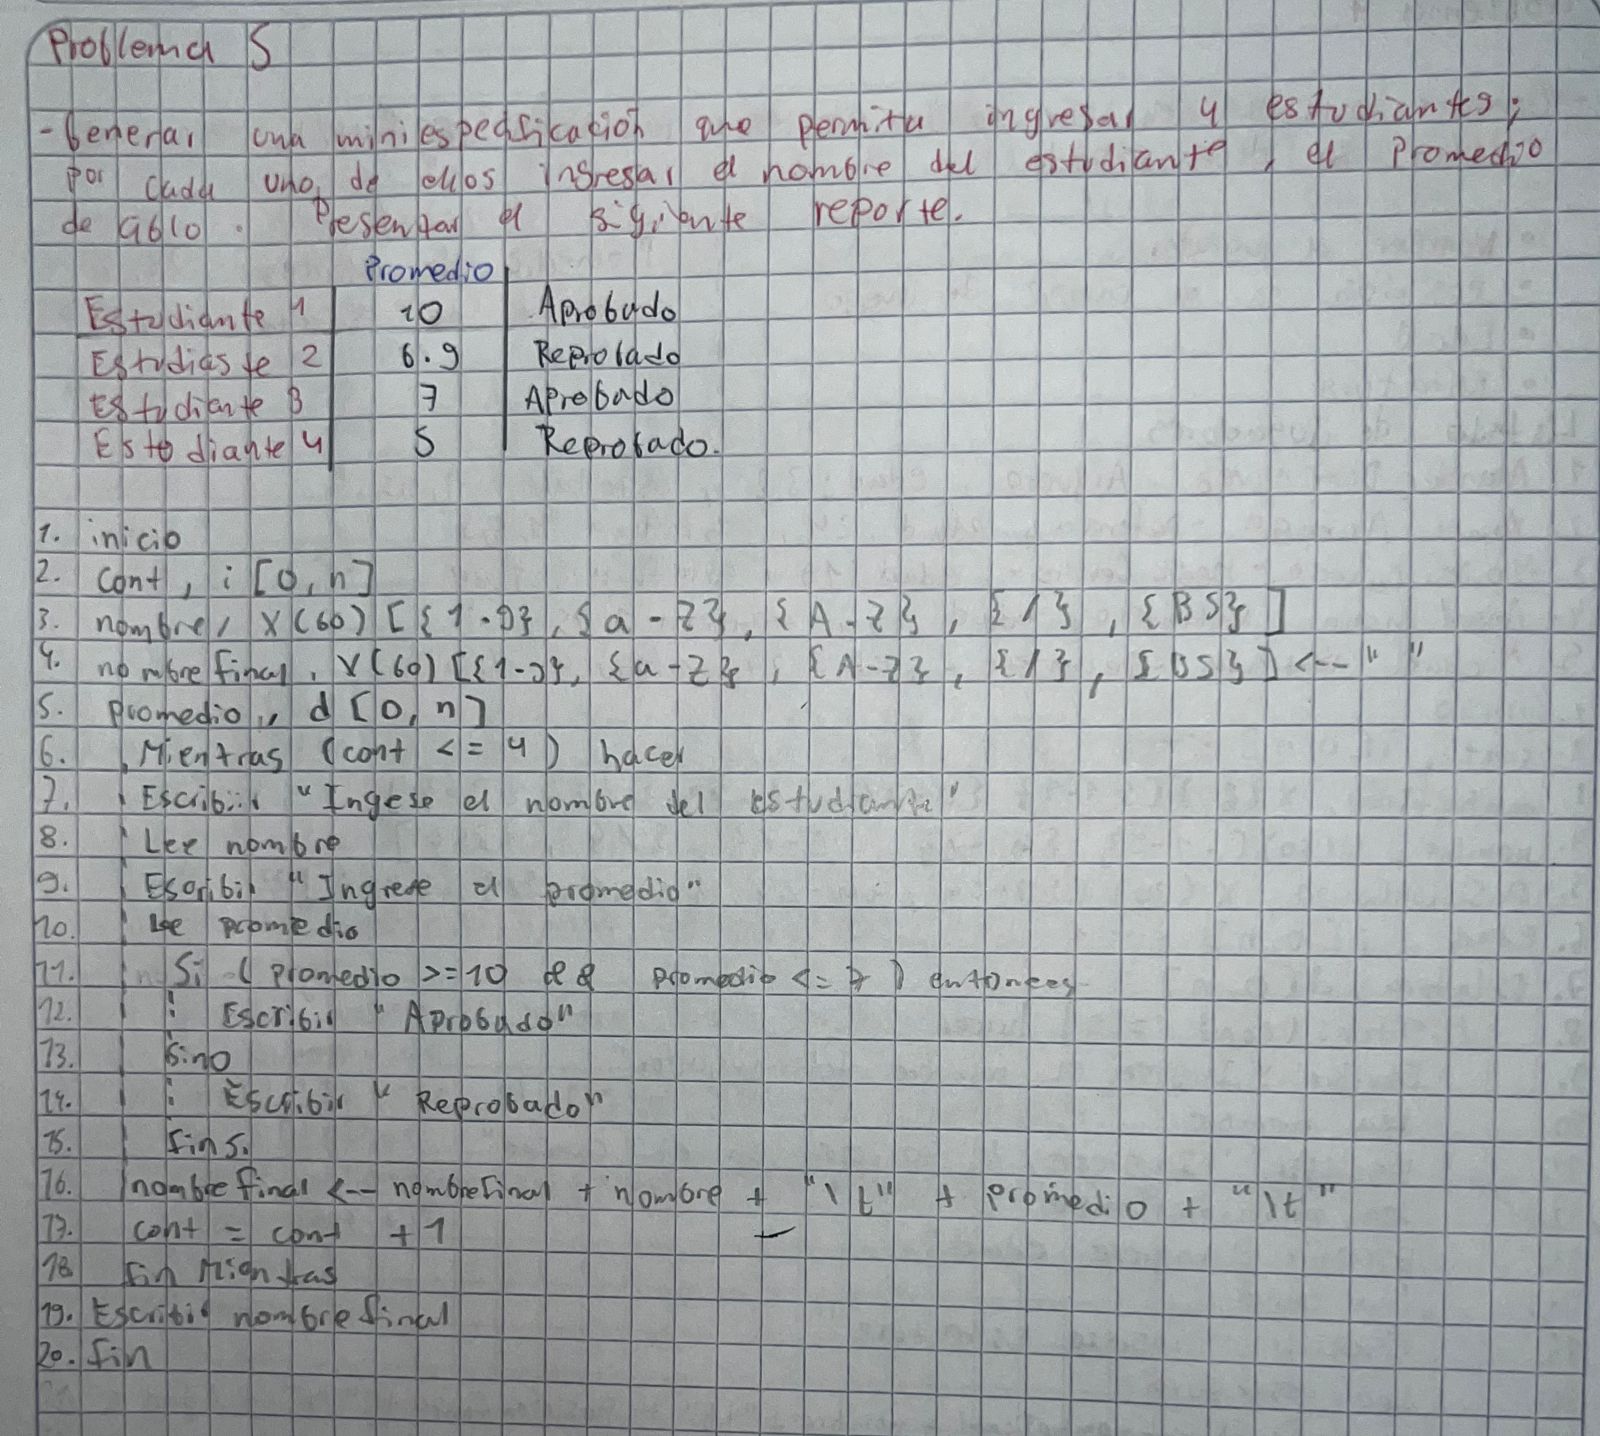 Problema 5
- Generar una miniespecificación que permita ingresar 4 estudiantes;
por cada uno de ellos ingresar el nombre del estudiante, el promedio
de ciclo. Presentar el siguiente reporte.
Promedio
Estudiante 1 10 Aprobado
Estudiante 2 6.9 Reprobado
Estudiante 3 7 Aprobado
Estudiante 4 5 Reprobado.
1. inicio
2. cont, i [0, n]
3. nombre, X(60) [{1-9}, {a-z}, {A-Z}, {/}, {BS}]
4. nombre final, X(60) [{1-9}, {a-z}, {A-Z}, {/}, {BS}] <-- " "
5. promedio, d [0, n]
6. Mientras (cont <= 4) hacer
7. Escribir "Ingese el nombre del estudiante"
8. Lee nombre
9. Escribir "Ingrese el promedio"
10. Lee promedio
11. Si (promedio >=10 && promedio <= 7) entonces
12. Escribir "Aprobado"
13. Sino
14. Escribir "Reprobado"
15. fin si
16. nombre final <-- nombrefinal + nombre + "\t" + promedio + "\t"
17. cont = cont + 1
18 fin Mientras
19. Escribir nombre final
20. fin